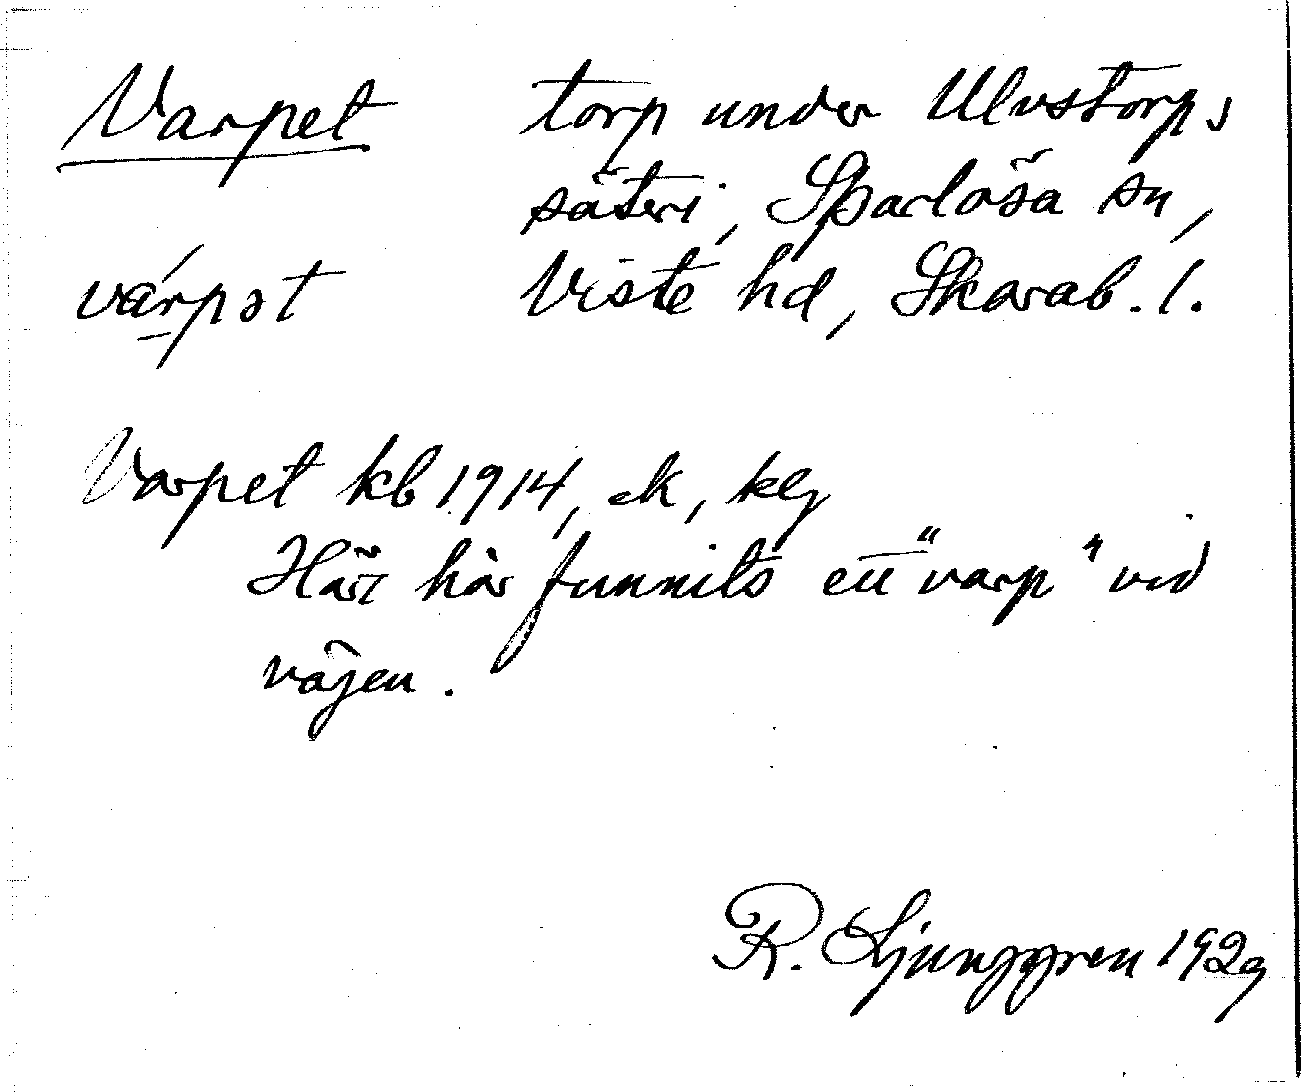 Varpet torp under Ulvstorps
säteri, Sparlösa sn,
várpət Viste hd, Skarab. l.
Varpet kb 1914, ek, kg
Här har funnits ett "varp" vid
vägen.
R. Ljunggren 1929